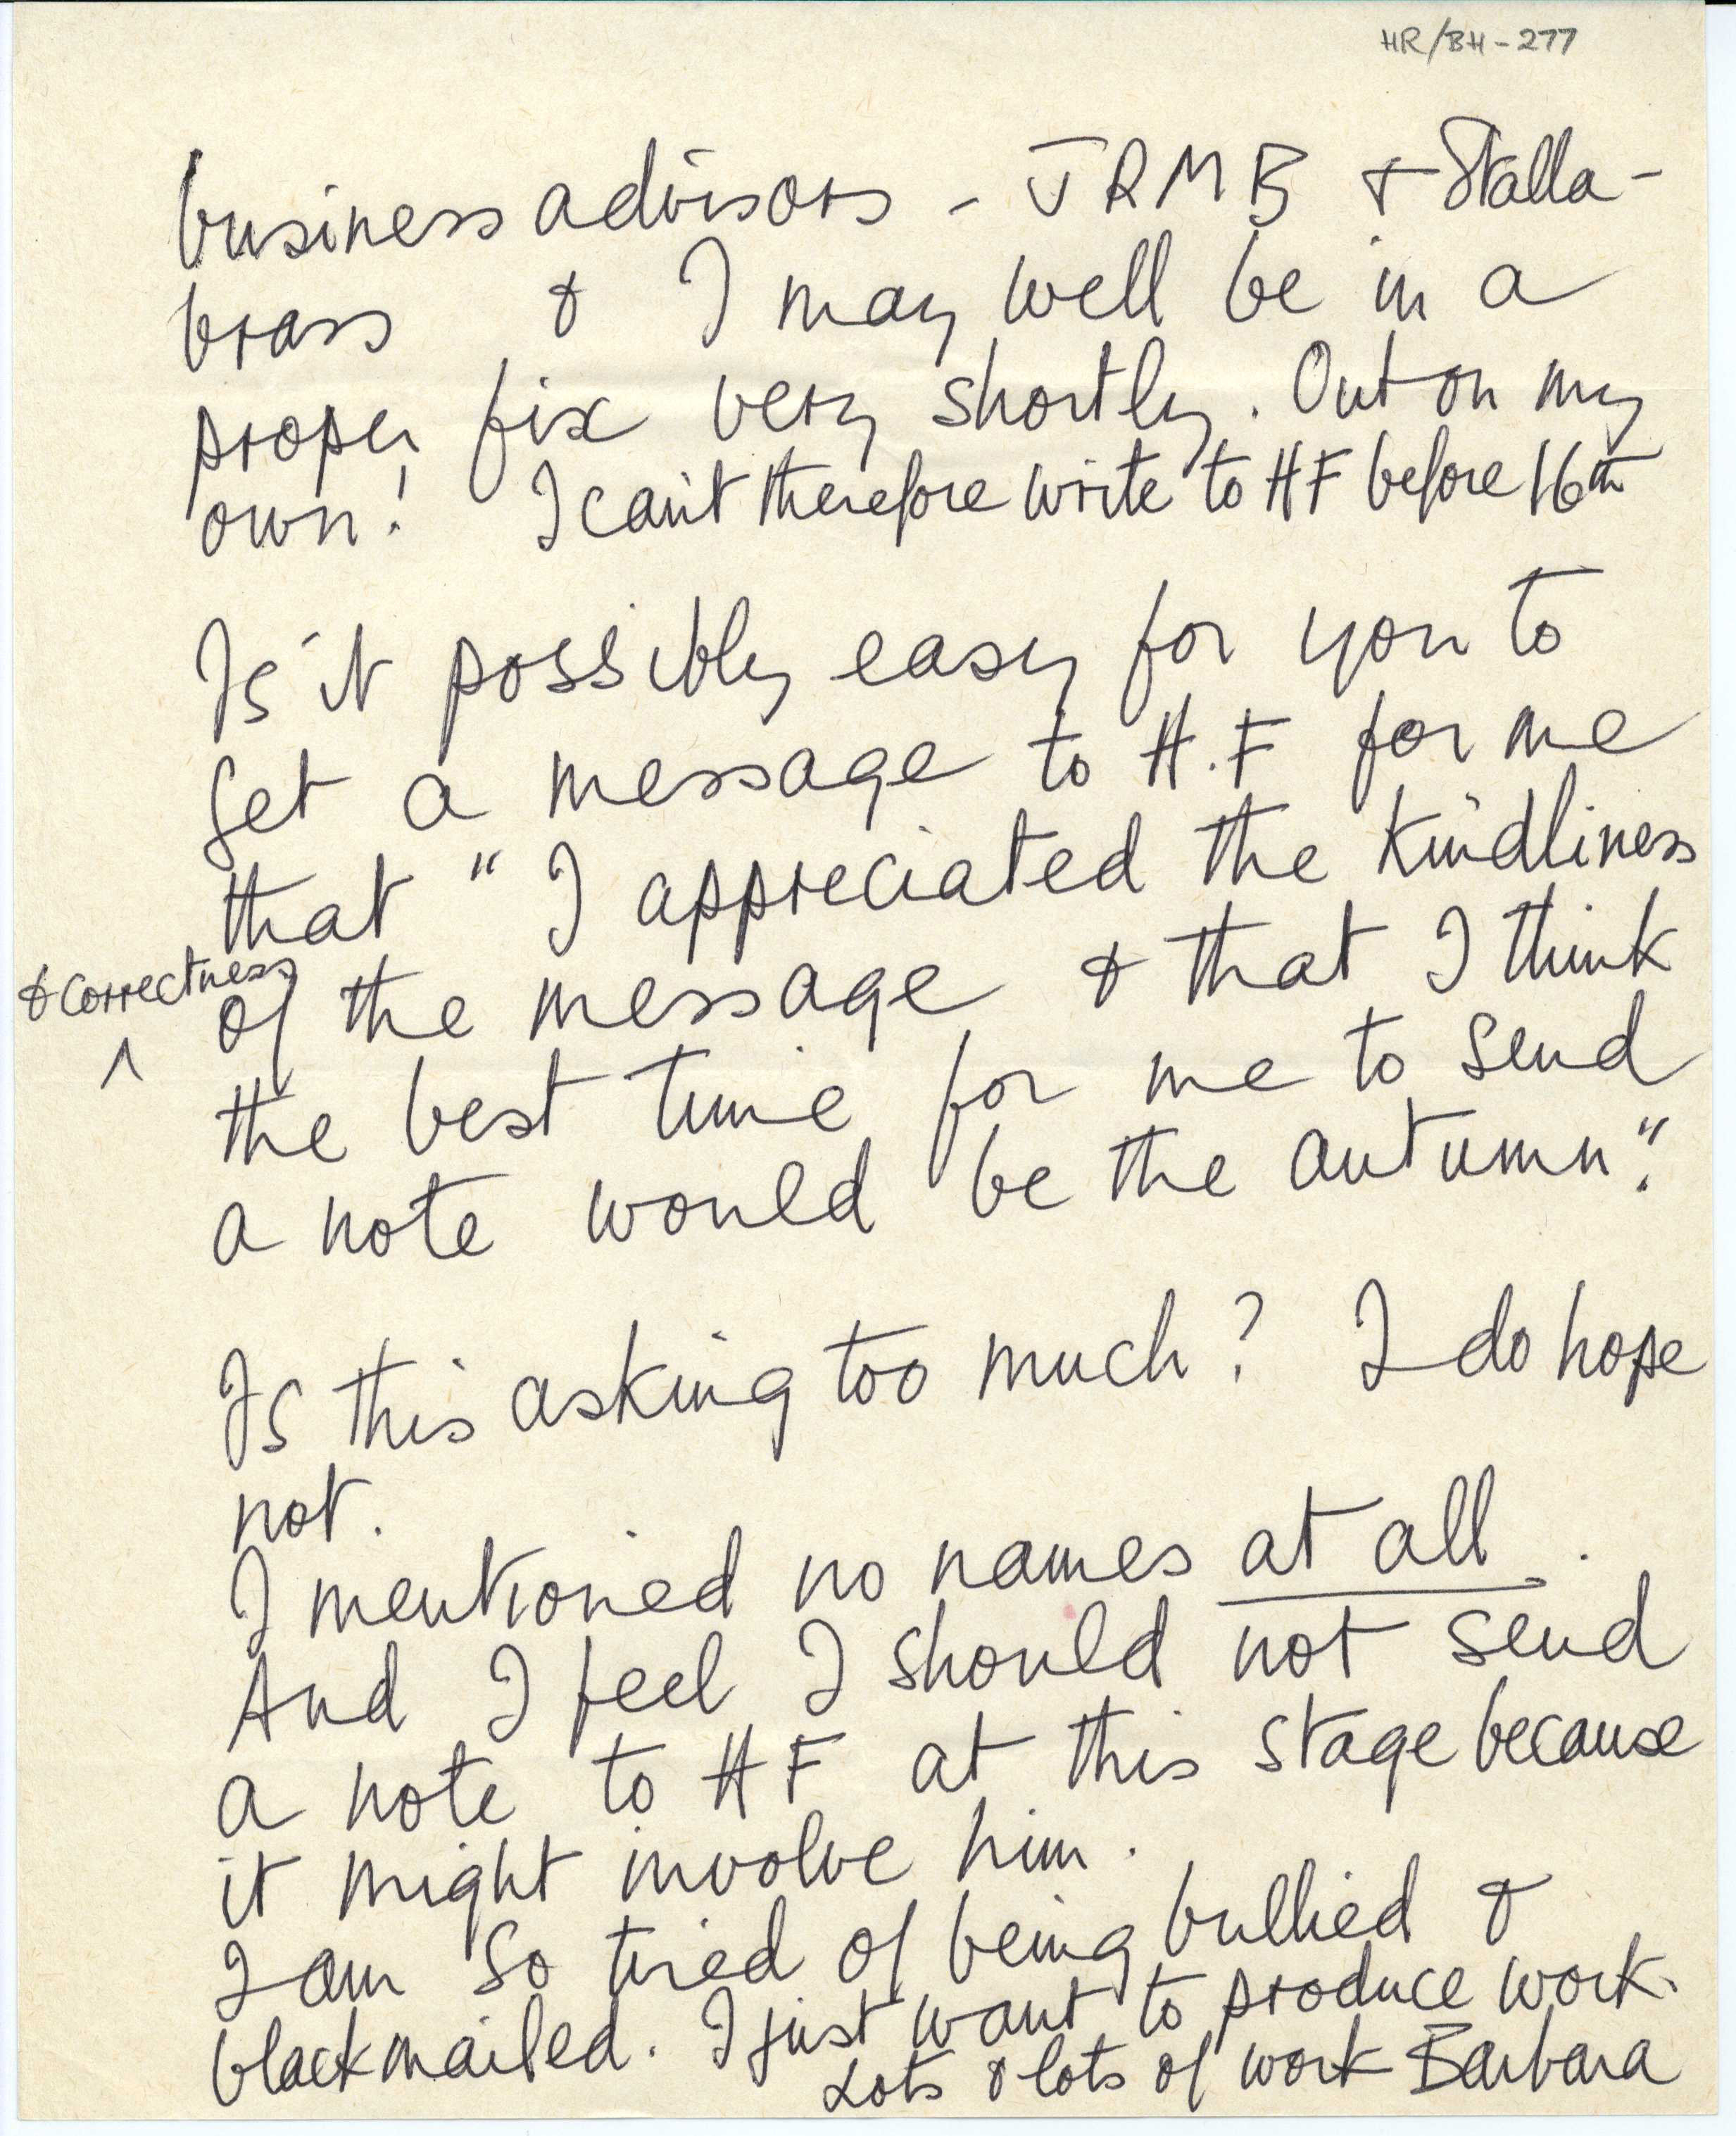 HR/BH-277
business advisors - JRMB & Stalla-
brass & I may well be in a
proper fix very shortly. Out on my
own! I can't therefore write to HF before 16th
Is it possibly easy for you to
get a message to H.F for me
that " I appreciated the kindliness
& correctness
^ of the message & that I think
the best time for me to send
a note would be the autumn".
Is this asking too much? I do hope
not.
I mentioned no names at all.
And I feel I should not send
a note to HF at this stage because
it might involve him.
I am so tired of being bullied &
blackmailed. I just want to produce work.
Lots & lots of work Barbara